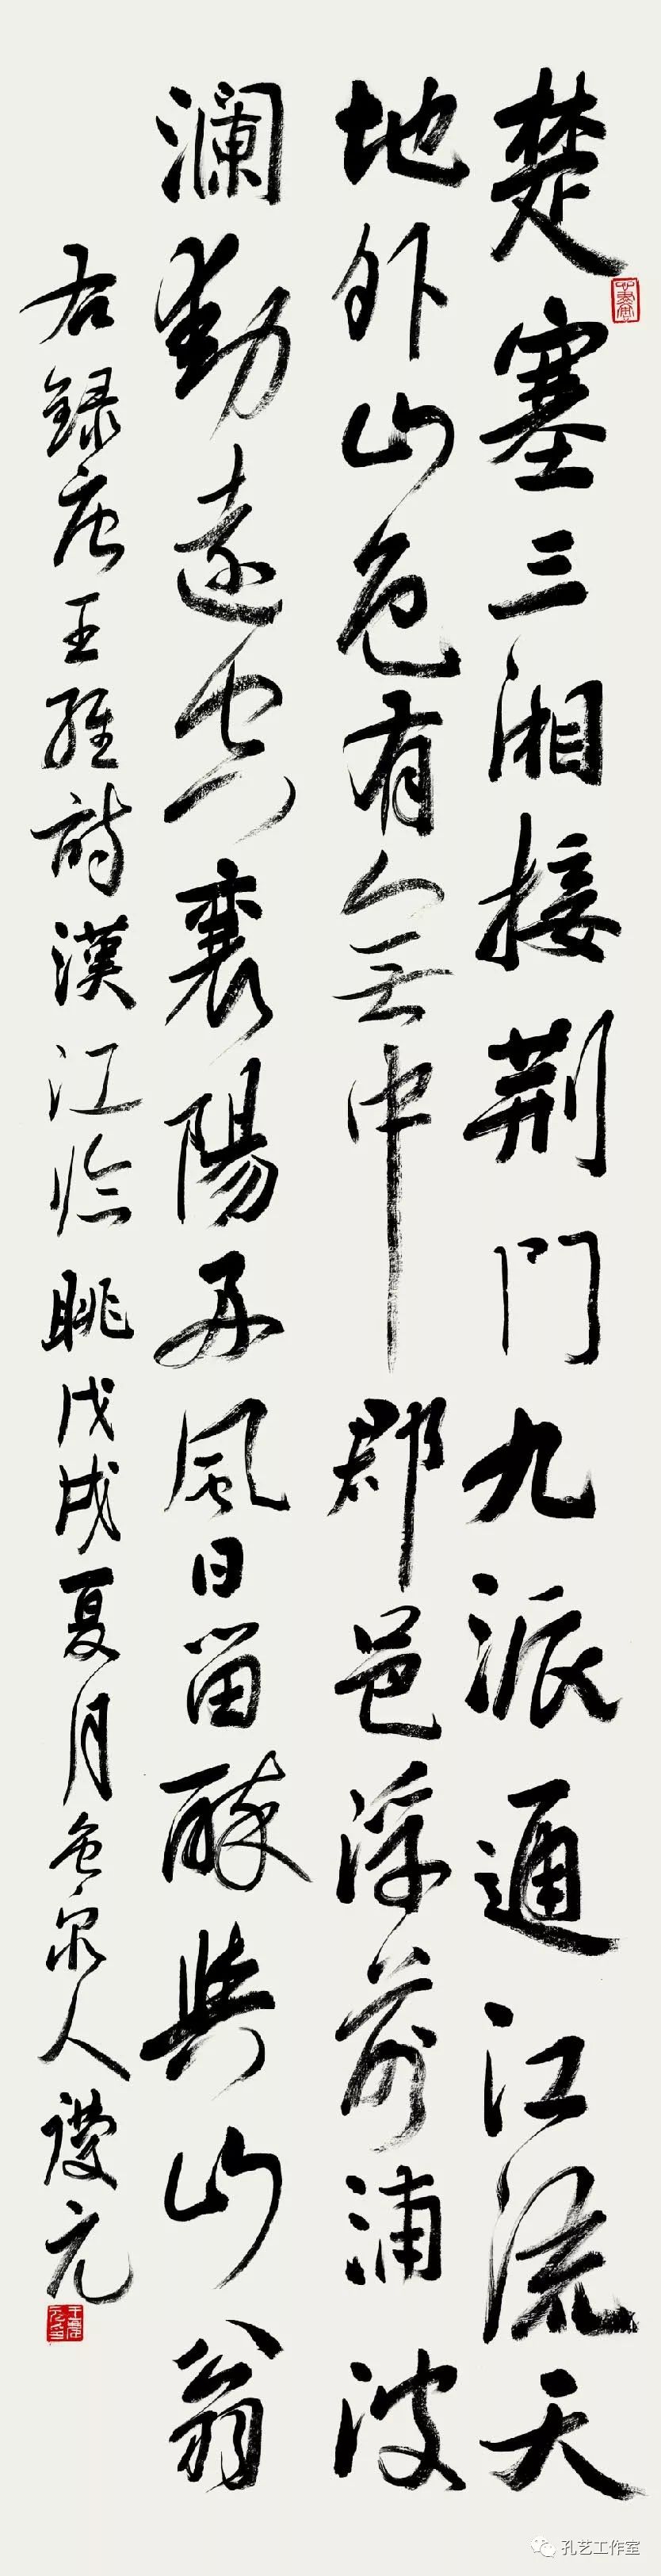 楚塞三湘接荆門九派通江流天
地外山色有無中郡邑浮前浦波
澜動遠空襄陽好風日留醉與山翁
右録唐王維詩漢江临眺戊戌夏月泉人元
孔艺工作室